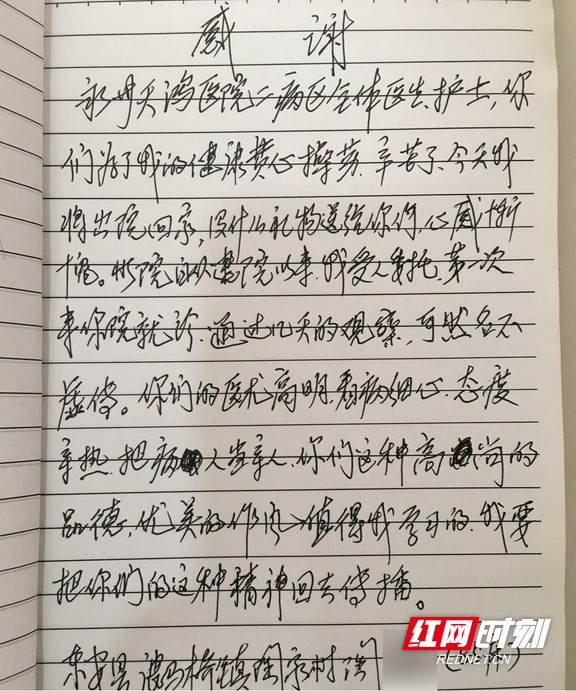 感谢
永州天鸿医院二病区全体医生、护士,你
们为了我的健康费心操劳.辛苦了、今天我
将出院回家,没什么礼物送给你们,心感惭
愧。你院自从建院以来,我受人委托,第一次
来你院就诊.通过几天的观察,可然名不
虚传。你们的医术高明.看病细心.态度
亲热.把病人当亲人.你们这种高尚的
品德,优美的作风值得我学习的.我要
把你们的这种精神回去传播。
东安县 马桥镇 家村
红网时刻
REDNET.CN